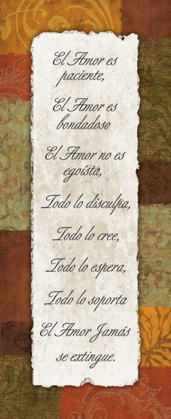 El Amor es
paciente,
El Amor es
bondadoso
El Amor no es
egoísta,
Todo lo disculpa,
Todo lo cree,
Todo lo espera,
Todo lo soporta
El Amor Jamás
se extingue.